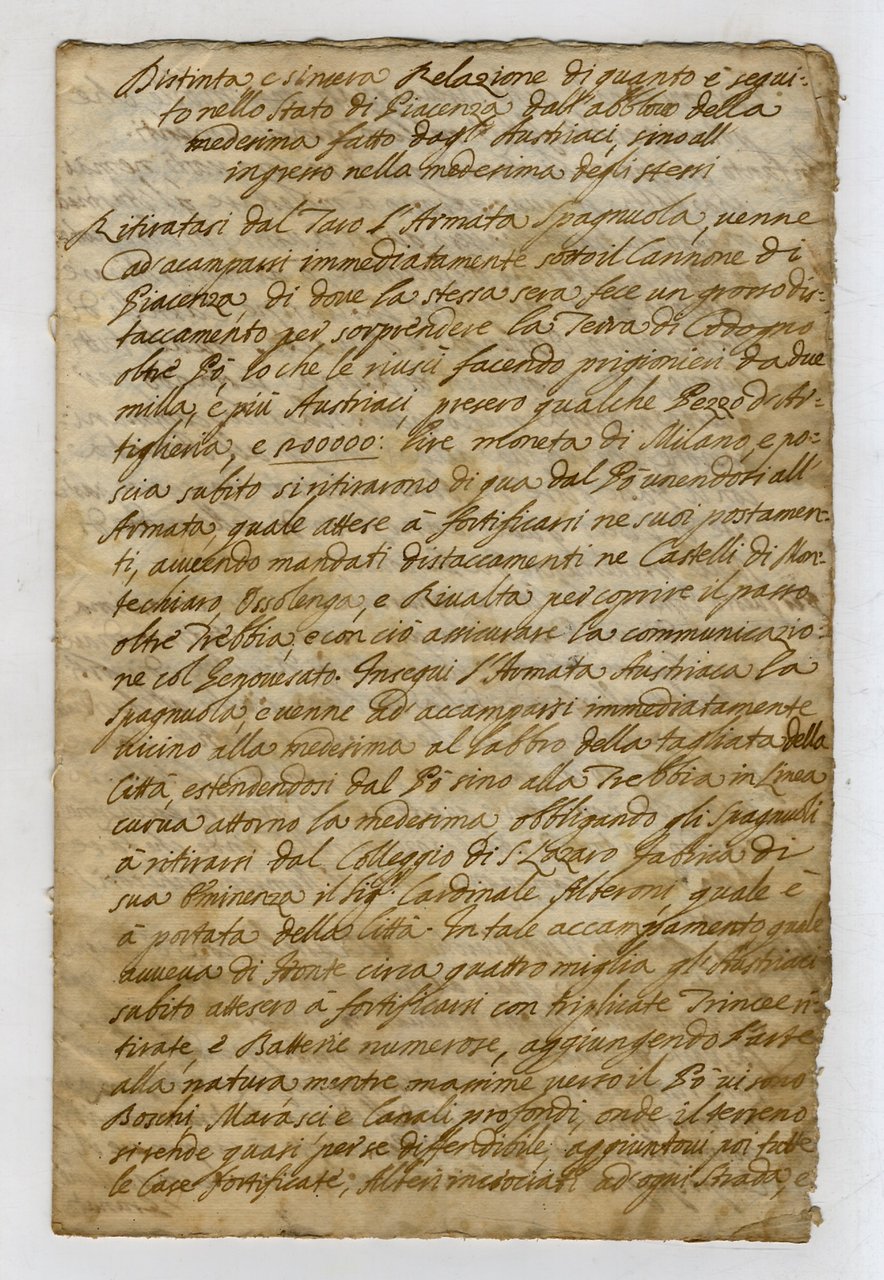 Distinta e sincera Relazione di quanto è segui-
to nello Stato di Piacenza dall'abbloco della
medesima fatto dagl' Austriaci, sino all'
ingresso nella medesima degli stessi
Ritiratasi dal Taro l'Armata Spagnuola, venne
ad acamparsi immediatamente sotto il Cannone di
Piacenza, di dove la stessa sera fece un grosso dis-
taccamento per sorprendere la Terra di Codogno
oltre Pò, lo che le riuscì facendo prigionieri da due
milla, e più Austriaci, presero qualche Pezzo di Ar-
tiglieria, e 200000: lire moneta di Milano, e po-
scia subito si ritirarono di qua dal Pò unendosi all'
Armata, quale attese à fortificarsi ne suoi postamen-
ti, avvendo mandati distaccamenti ne Castelli di Mon-
techiaro, Ossolenga, e Rivalta per coprire il passo
oltre Trebbia, e con ciò assicurare la communicazio-
ne col Genovesato. Inseguì l'Armata Austriaca la
Spagnuola, e venne ad accamparsi immediatamente
vicino alla medesima al labbro della tagliata della
Città, estendendosi dal Pò sino alla Trebbia in Linea
curva attorno la medesima, obbligando gli Spagnuoli
à ritirarsi dal Colleggio di S. Lazaro fabrica di
sua Eminenza il Sig.r Cardinale Alberoni, quale è
à portata della Città. In tale accampamento quale
avveva di fronte circa quattro miglia gl'Austriaci
subito attesero à fortificarsi con triplicate Trincee ri-
tirate, e Batterie numerose, aggiungendo l'arte
alla natura mentre massime verso il Pò vi sono
Boschi, Marasci e Canali profondi, onde il terreno
si rende quasi per se diffendibile, aggiuntovi poi tutte
le Case fortificate, Alberi incrociati ad ogni Strada, e